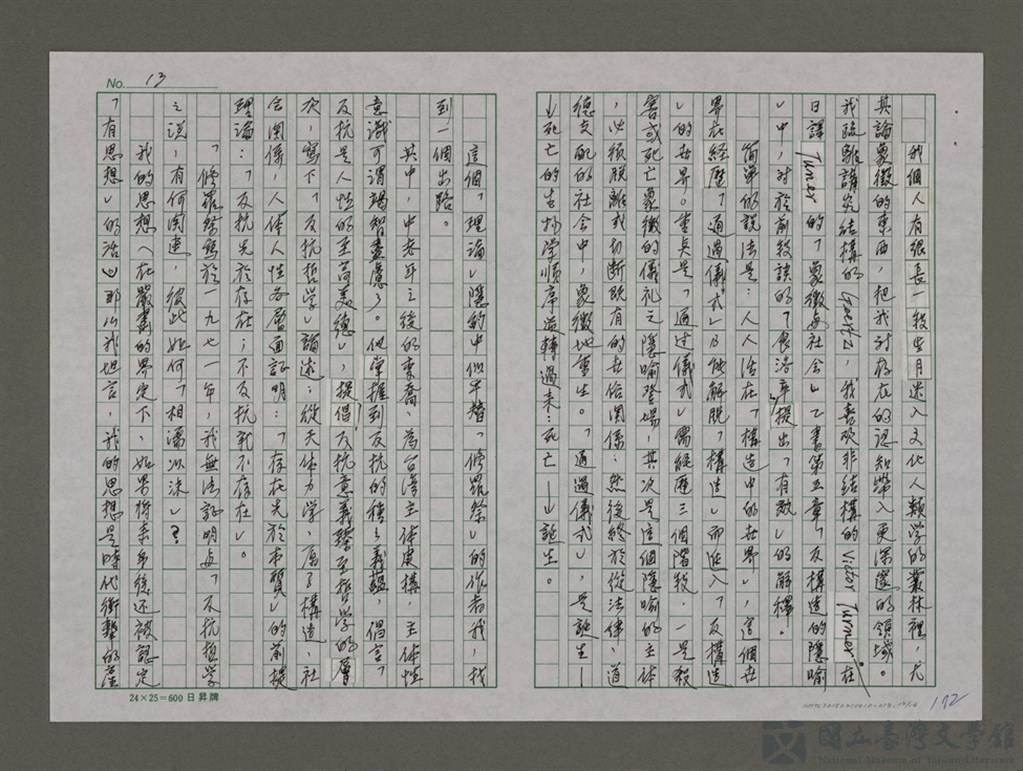 No. 13
我個人有很長一段歲月迷入文化人類學的叢林裡,尤
其論象徵的東西,把我對存在的認知帶入更深邃的領域。
我疏離講究結構的Geertz,我喜歡非結構的Victor Turner,在
日譯Turner的「象徵與社会」乙書第五章「反構造的隱喻
」中,對於前段談的「食活」提出「有效」的解釋。
簡單的說法是:人人活在「構造中的世界」,這個世
界在経歷「通過儀式」乃能解脫「構造」而進入「反構造
」的世界。重点是「通過儀式」需経歷三個階段,一是殺
害或死亡象徵的儀礼之隱喻登場,其次是這個隱喻的主体
,必須脫離或切斷既有的世俗関係;然後終於從法律、道
德支配的社会中,象徵地重生。「通過儀式」,是誕生—
↓死亡的生物学順序逆轉過來:死亡—↓誕生。
這個「理論」隱約中似乎替「修羅祭」的作者我,找
到一個出路。
其中,中老年之後的東喬、為台湾主体建構,主体性
意識可謂竭智盡慮了。他掌握到反抗的積義蘊,倡言「
反抗是人性的至高美德」,提倡反抗意義繫至哲学的層
次,寫下「反抗哲学」論述;從天体力学、原子構造、社
会関係,人体人性各層面証明:「存在先於本質」的前提
理論:「反抗先於存在;不反抗就不存在」。
「修羅祭」寫於一九七一年,我無法証明与「不抗哲学
」之說,有何関連,彼此如何「相濡以沫」?
我的思想(在嚴肅的界定下、如果將來弟後还被認定
「有思想」的話)那么我坦言,我的思想是時代衝擊的產
24×25=600 日昇牌
172
國立臺灣文學館
National Museum of Taiwan Literature